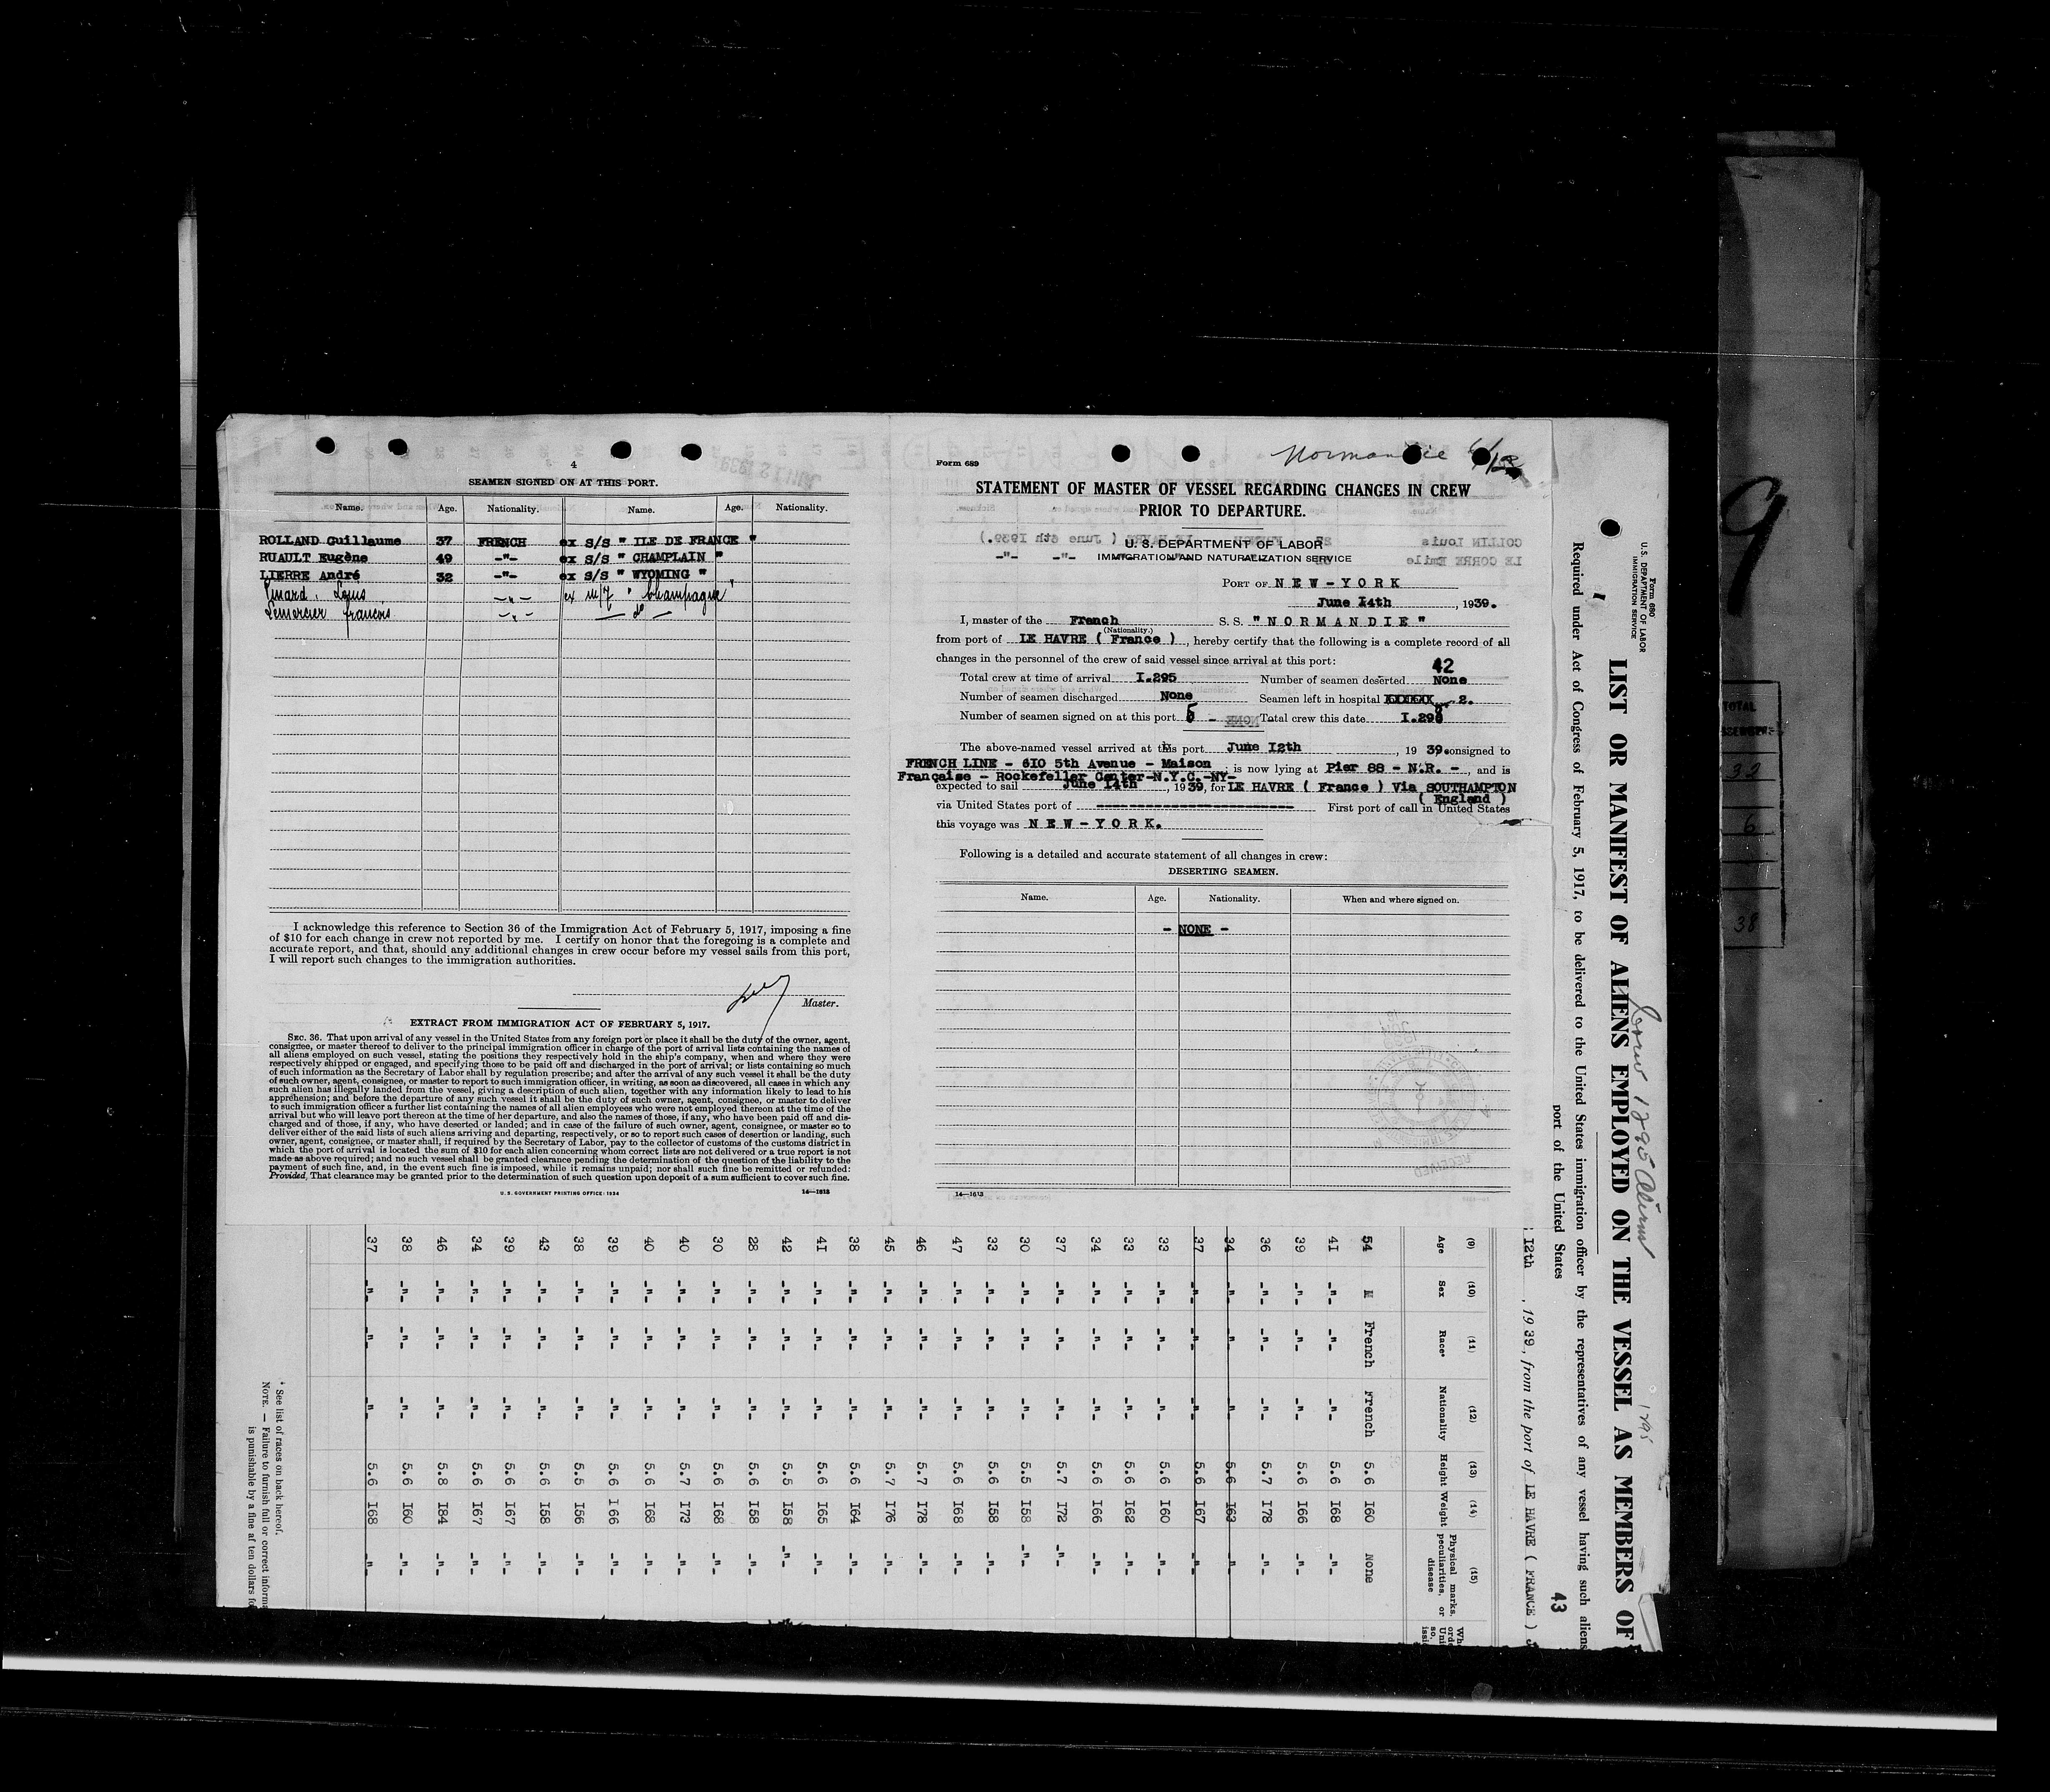 4
SEAMEN SIGNED ON AT THIS PORT.
Name. Age. Nationality. Name. Age. Nationality.
ROLLAND Guillaume 37 FRENCH ex S/S " ILE DE FRANCE "
RUAULT Eugène 49 -"- ex S/S " CHAMPLAIN "
LIERRE André 32 -"- ex S/S " WYOMING "
Louis -"- ex M/ " Champagne "
Lemercier francois -"- — do —
I acknowledge this reference to Section 36 of the Immigration Act of February 5, 1917, imposing a fine
of $10 for each change in crew not reported by me. I certify on honor that the foregoing is a complete and
accurate report, and that, should any additional changes in crew occur before my vessel sails from this port,
I will report such changes to the immigration authorities.
Master.
EXTRACT FROM IMMIGRATION ACT OF FEBRUARY 5, 1917.
SEC. 36. That upon arrival of any vessel in the United States from any foreign port or place it shall be the duty of the owner, agent,
consignee, or master thereof to deliver to the principal immigration officer in charge of the port of arrival lists containing the names of
all aliens employed on such vessel, stating the positions they respectively hold in the ship's company, when and where they were
respectively shipped or engaged, and specifying those to be paid off and discharged in the port of arrival; or lists containing so much
of such information as the Secretary of Labor shall by regulation prescribe; and after the arrival of any such vessel it shall be the duty
of such owner, agent, consignee, or master to report to such immigration officer, in writing, as soon as discovered, all cases in which any
such alien has illegally landed from the vessel, giving a description of such alien, together with any information likely to lead to his
apprehension; and before the departure of any such vessel it shall be the duty of such owner, agent, consignee, or master to deliver
to such immigration officer a further list containing the names of all alien employees who were not employed thereon at the time of the
arrival but who will leave port thereon at the time of her departure, and also the names of those, if any, who have been paid off and dis-
charged and of those, if any, who have deserted or landed; and in case of the failure of such owner, agent, consignee, or master so to
deliver either of the said lists of such aliens arriving and departing, respectively, or so to report such cases of desertion or landing, such
owner, agent, consignee, or master shall, if required by the Secretary of Labor, pay to the collector of customs of the customs district in
which the port of arrival is located the sum of $10 for each alien concerning whom correct lists are not delivered or a true report is not
made as above required; and no such vessel shall be granted clearance pending the determination of the question of the liability to the
payment of such fine, and, in the event such fine is imposed, while it remains unpaid; nor shall such fine be remitted or refunded:
Provided, That clearance may be granted prior to the determination of such question upon deposit of a sum sufficient to cover such fine.
U. S. GOVERNMENT PRINTING OFFICE: 1934 14—1613
Form 689 Normandie 6/12
STATEMENT OF MASTER OF VESSEL REGARDING CHANGES IN CREW
PRIOR TO DEPARTURE.
U. S. DEPARTMENT OF LABOR
IMMIGRATION AND NATURALIZATION SERVICE
PORT OF NEW-YORK
June I4th, 1939.
I, master of the French S. S. "NORMANDIE"
(Nationality.)
from port of LE HAVRE ( France ), hereby certify that the following is a complete record of all
changes in the personnel of the crew of said vessel since arrival at this port:
42
Total crew at time of arrival I.295 Number of seamen deserted None
Number of seamen discharged None Seamen left in hospital 2.
Number of seamen signed on at this port 5 - Total crew this date I.298
The above-named vessel arrived at this port June I2th, 1939 consigned to
FRENCH LINE - 6IO 5th Avenue - Maison ; is now lying at Pier 88 - N.R. -, and is
Française - Rockefeller Center-N.Y.C.-NY-
expected to sail June I4th, 1939, for LE HAVRE ( France ) Via SOUTHAMPTON
( England )
via United States port of ---------- First port of call in United States
this voyage was NEW-YORK.
Following is a detailed and accurate statement of all changes in crew:
DESERTING SEAMEN.
Name. Age. Nationality. When and where signed on.
- NONE -
14—1613
Form 680
U. S. DEPARTMENT OF LABOR
IMMIGRATION SERVICE
LIST OR MANIFEST OF ALIENS EMPLOYED ON THE VESSEL AS MEMBERS OF
Required under Act of Congress of February 5, 1917, to be delivered to the United States immigration officer by the representatives of any vessel having such aliens
port of the United States
43
I2th, 1939, from the port of LE HAVRE ( FRANCE )
1295
(9) (10) (11) (12) (13) (14) (15)
Age Sex Race* Nationality Height Weight Physical marks, peculiarities, or disease
54 M French French 5.6 I60 None
4I -"- -"- -"- 5.6 I68 -"-
39 -"- -"- -"- 5.6 I66 -"-
36 -"- -"- -"- 5.7 I78 -"-
34 -"- -"- -"- 5.6 I63 -"-
37 -"- -"- -"- 5.6 I67 -"-
33 -"- -"- -"- 5.6 I60 -"-
33 -"- -"- -"- 5.6 I62 -"-
34 -"- -"- -"- 5.6 I66 -"-
37 -"- -"- -"- 5.7 I72 -"-
30 -"- -"- -"- 5.5 I58 -"-
33 -"- -"- -"- 5.6 I58 -"-
47 -"- -"- -"- 5.6 I68 -"-
46 -"- -"- -"- 5.7 I78 -"-
45 -"- -"- -"- 5.7 I76 -"-
38 -"- -"- -"- 5.6 I64 -"-
4I -"- -"- -"- 5.6 I65 -"-
42 -"- -"- -"- 5.5 I58 -"-
28 -"- -"- -"- 5.6 I58 -"-
30 -"- -"- -"- 5.6 I68 -"-
40 -"- -"- -"- 5.7 I73 -"-
40 -"- -"- -"- 5.6 I68 -"-
39 -"- -"- -"- 5.6 I66 -"-
38 -"- -"- -"- 5.5 I56 -"-
43 -"- -"- -"- 5.6 I58 -"-
39 -"- -"- -"- 5.6 I67 -"-
34 -"- -"- -"- 5.6 I67 -"-
46 -"- -"- -"- 5.8 I84 -"-
38 -"- -"- -"- 5.6 I60 -"-
37 -"- -"- -"- 5.6 I68 -"-
* See list of races on back hereof.
NOTE. — Failure to furnish full or correct inform
is punishable by a fine of ten dollars fo
9
TOTAL
32
6
38